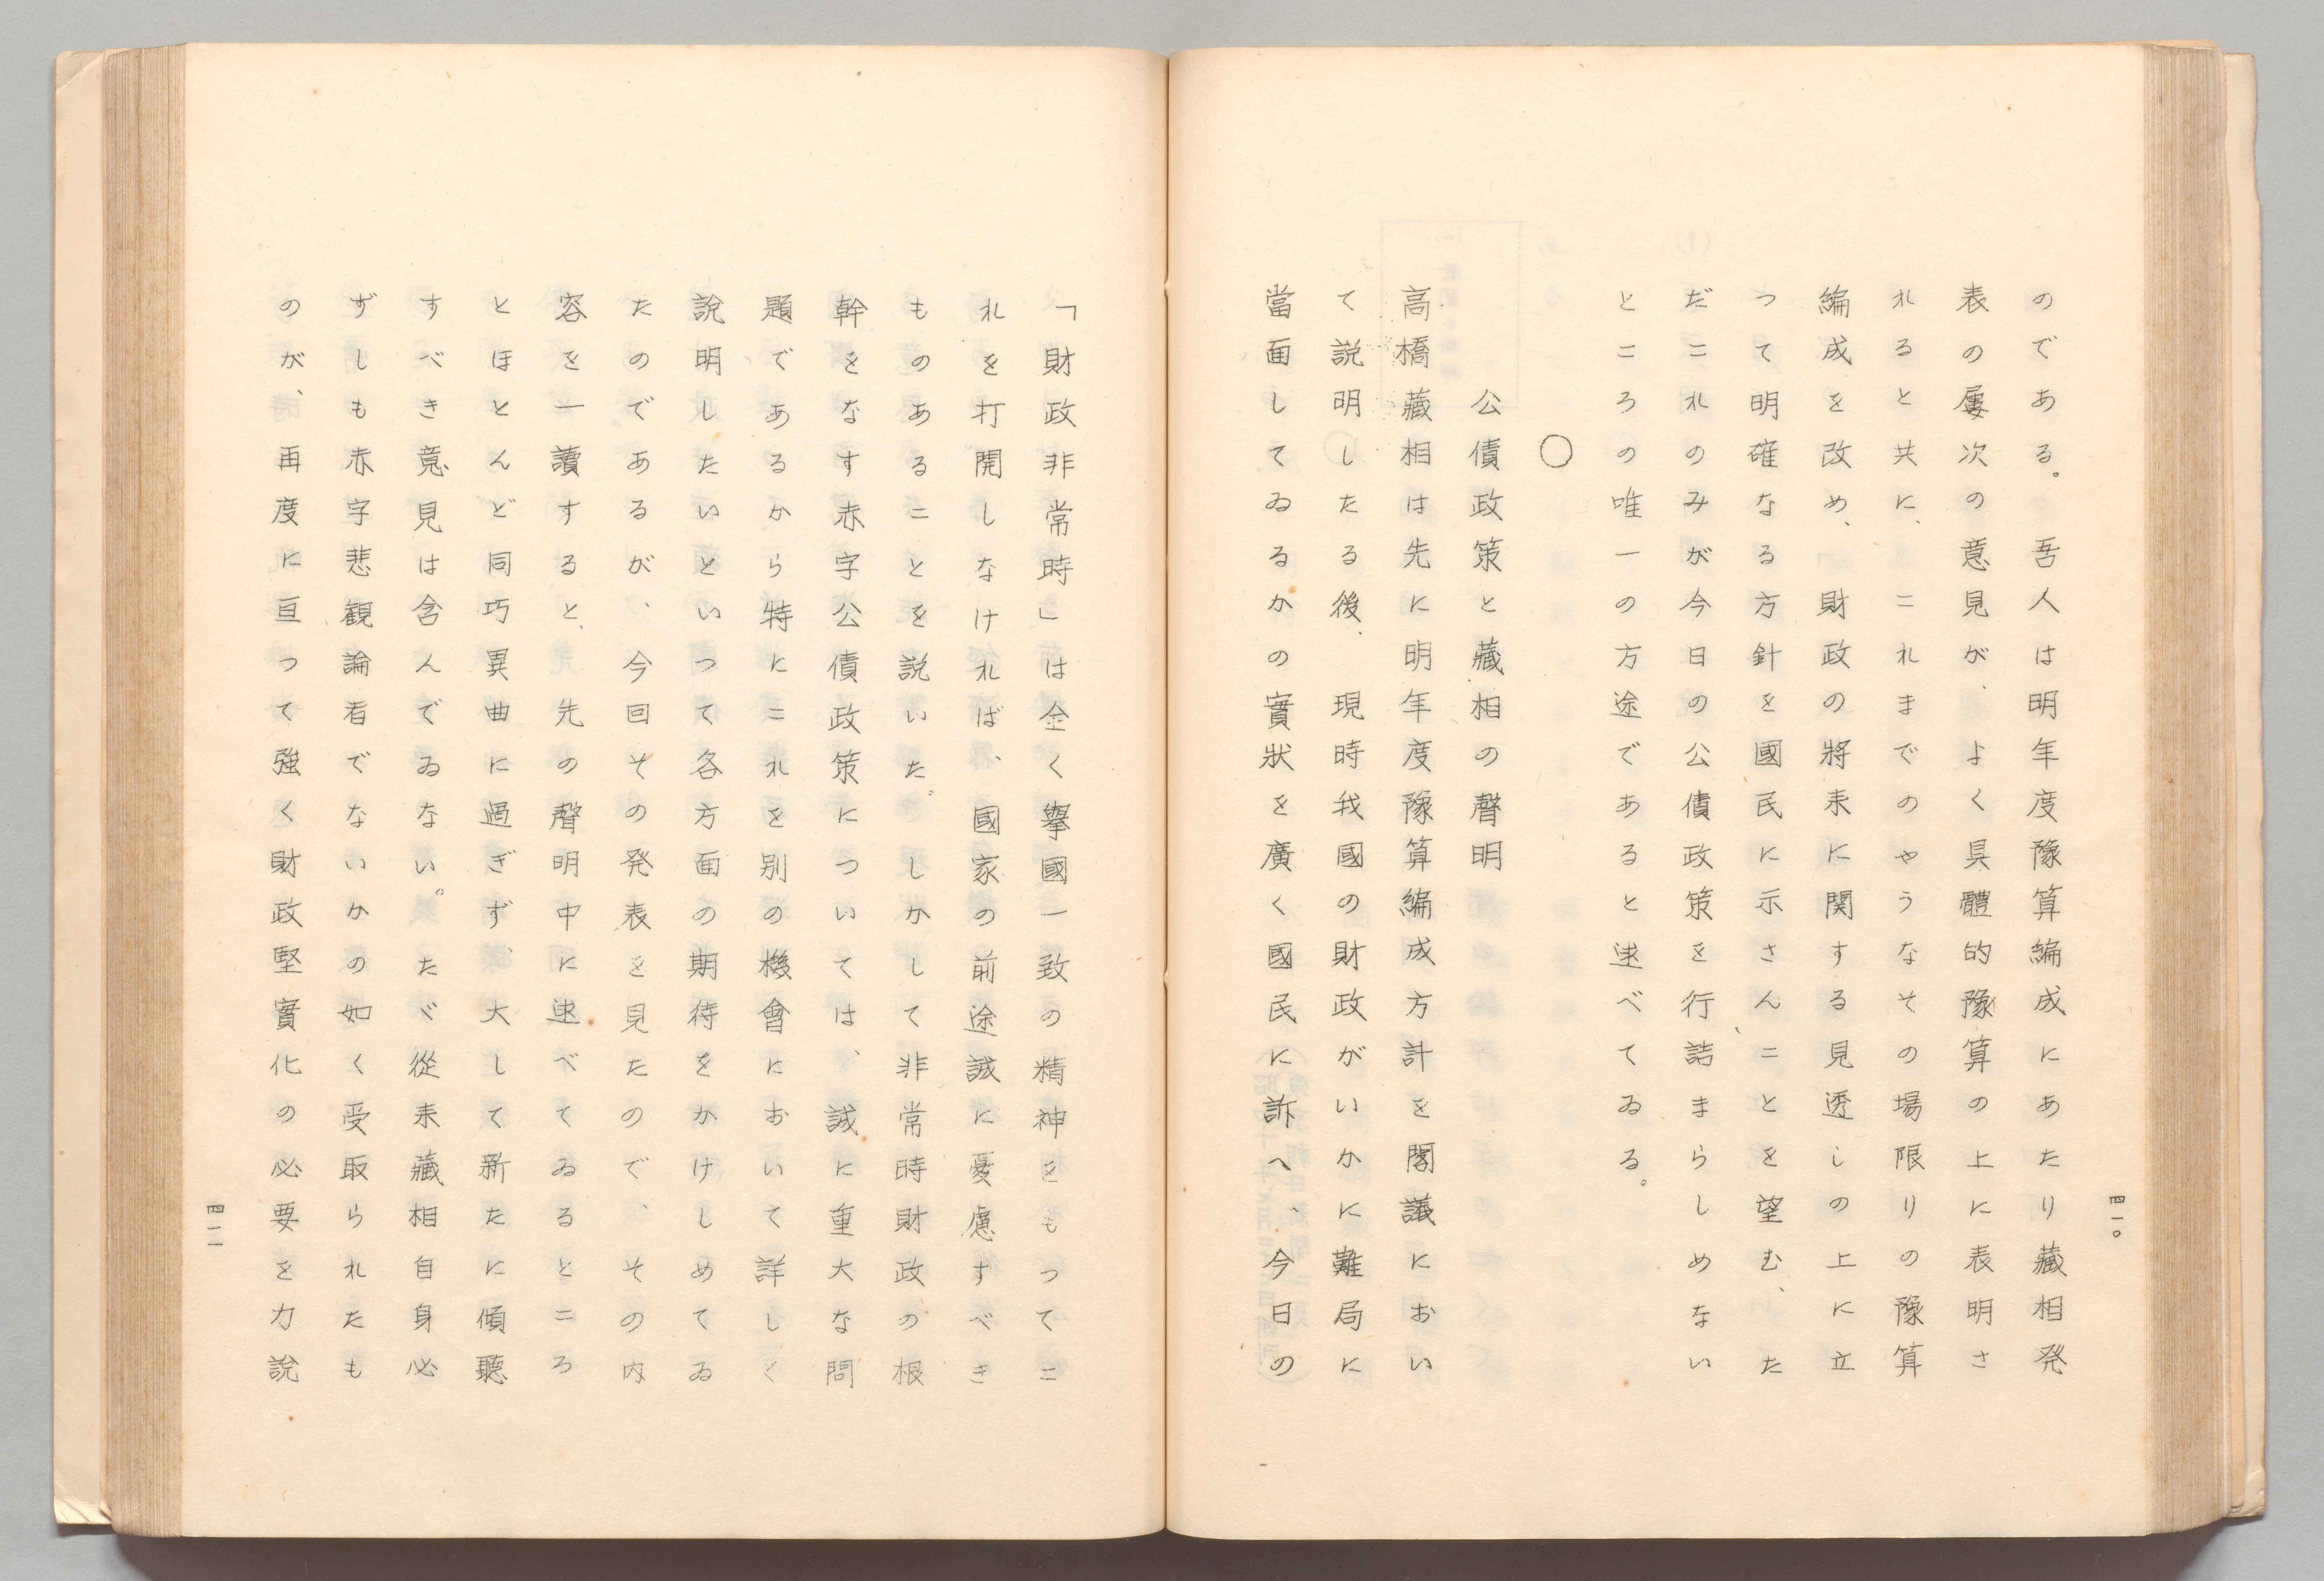 のである。吾人は明年度豫算編成にあたり藏相発
表の屢次の意見が、よく具體的豫算の上に表明さ
れると共に、これまでのやうなその場限りの豫算
編成を改め、財政の將来に関する見透しの上に立
つて明確なる方針を國民に示さんことを望む、た
だこれのみが今日の公債政策を行詰まらしめない
ところの唯一の方途であると述べてゐる。
○
公債政策と藏相の聲明
高橋藏相は先に明年度豫算編成方計を閣議におい
て説明したる後、現時我國の財政がいかに難局に
當面してゐるかの實狀を廣く國民に訴へ、今日の
四一〇
「財政非常時」は全く擧國一致の精神をもつてこ
れを打開しなければ、國家の前途誠に憂慮すべき
ものあることを説いた。しかして非常時財政の根
幹をなす赤字公債政策については、誠に重大な問
題であるから特にこれを別の機會において詳しく
說明したいといつて各方面の期待をかけしめてゐ
たのであるが、今回その発表を見たので、その内
容を一讀すると、先の聲明中に述べてゐるところ
とほとんど同巧異曲に過ぎず、大して新たに傾聽
すべき意見は含んでゐない。たゞ從来藏相自身必
ずしも赤字悲観論者でないかの如く受取られたも
のが、再度に亘つて強く財政堅實化の必要を力説
四一一